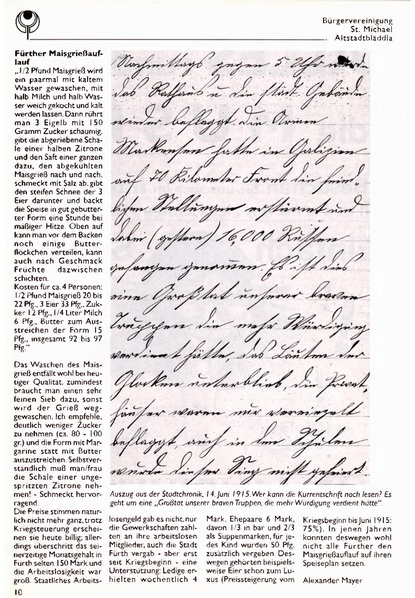 Bürgervereinigung
St. Michael
Altstadtbläddla
Fürther Maisgrießauf-
lauf
„1/2 Pfund Maisgrieß wird
ein paarmal mit kaltem
Wasser gewaschen, mit
halb Milch und halb Was-
ser weich gekocht und kalt
werden lassen. Dann rührt
man 3 Eigelb mit 150
Gramm Zucker schaumig,
gibt die abgeriebene Scha-
le einer halben Zitrone
und den Saft einer ganzen
dazu, den abgekühlten
Maisgrieß nach und nach,
schmeckt mit Salz ab, gibt
den steifen Schnee der 3
Eier darunter und bäckt
die Speise in gut gebutter-
ter Form eine Stunde bei
mäßiger Hitze. Oben auf
kann man vor dem Backen
noch einige Butter-
flöckchen verteilen, kann
auch nach Geschmack
Früchte dazwischen
schichten.
Kosten für ca. 4 Personen:
1/2 Pfund Maisgrieß 20 bis
22 Pfg., 3 Eier 33 Pfg., Zuk-
ker 12 Pfg., 1/4 Liter Milch
6 Pfg., Butter zum Aus-
streichen der Form 15
Pfg., insgesamt 92 bis 97
Pfg.“
Das Waschen des Mais-
grieß entfällt wohl bei heu-
tiger Qualität, zumindest
braucht man einen sehr
feinen Sieb dazu, sonst
wird der Grieß weg-
gewaschen. Ich empfehle,
deutlich weniger Zucker
zu nehmen (ca. 80 - 100
gr.) und die Form mit Mar-
garine statt mit Butter
auszustreichen. Selbstver-
ständlich muß man/frau
die Schale einer unge-
spritzten Zitrone neh-
men! - Schmeckt hervor-
ragend.
Die Preise stimmen natür-
lich nicht mehr ganz, trotz
Kriegsteuerung erschei-
nen sie heute billig; aller-
dings überschritt das sei-
nerzeitige Monatsgehalt in
Fürth selten 150 Mark und
die Arbeitslosigkeit war
groß. Staatliches Arbeits-
10
Nachmittags gegen 5 Uhr wurde
das Rathaus u. die städt. Gebäude
wieder beflaggt. Die Armee
Mackensen hatte in Galizien
auf 70 Kilometer Front die feind-
lichen Stellungen erstürmt und
dabei (gestern) 16,000 Russen
gefangen genommen. Es ist dies
eine Großtat unserer braven
Truppen die mehr Würdigung
verdient hätte, das Läuten der
Glocken unterblieb, die Privat-
häuser waren nur vereinzelt
beflaggt, auch in den Schulen
wurde dieser Sieg nicht gefeiert.
Auszug aus der Stadtchronik, 14. Juni 1915. Wer kann die Kurrentschrift noch lesen? Es
geht um eine „Großtat unserer braven Truppen, die mehr Würdigung verdient hätte“.
losengeld gab es nicht, nur
die Gewerkschaften zahl-
ten an ihre arbeitslosen
Mitglieder, auch die Stadt
Fürth vergab - aber erst
seit Kriegsbeginn - eine
Unterstützung: Ledige er-
hielten wöchentlich 4
Mark, Ehepaare 6 Mark,
davon 1/3 in bar und 2/3
als Suppenmarken, für je-
des Kind wurden 50 Pfg.
zusätzlich vergeben. Des-
wegen gehörten beispiels-
weise Eier schon zum Lu-
xus (Preissteigerung vom
Kriegsbeginn bis Juni 1915:
75%). In jenen Jahren
konnten deswegen wohl
nicht alle Fürther den
Maisgrießauflauf auf ihren
Speiseplan setzen.
Alexander Mayer